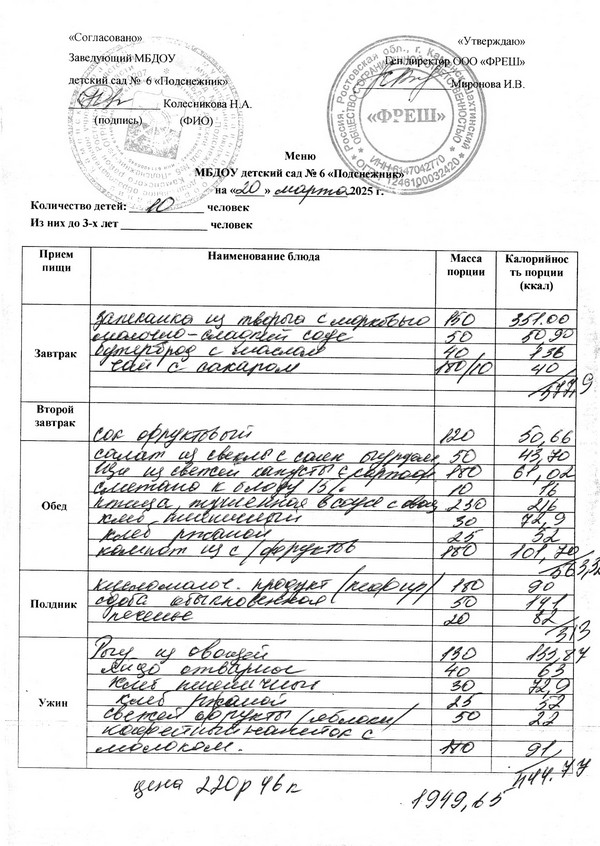 «Согласовано»
«Утверждаю»
Заведующий МБДОУ
Ген.директор ООО «ФРЕШ»
детский сад № 6 «Подснежник»
Колесникова Н.А.
Миронова И.В.
(подпись) (ФИО)
«ФРЕШ»
ИНН 6147042770
ОГРН 1246100032420
Меню
МБДОУ детский сад № 6 «Подснежник»
на «20» марта 2025 г.
Количество детей: 10 человек
Из них до 3-х лет человек
Прием пищи Наименование блюда Масса порции Калорийность порции (ккал)
Завтрак
запеканка из творога с морковью 150 351.00
молочно-сладкий соус 50 50,90
бутерброд с маслом 40 136
чай с сахаром 180/10 40
577,9
Второй завтрак
сок фруктовый 120 50,66
Обед
салат из свеклы с солен огурцом 50 43,70
щи из свежей капусты с картоф 180 61,02
сметана к блюду 15% 10 16
птица, тушенная в соусе с овощ 230 216
хлеб пшеничный 30 72,9
хлеб ржаной 25 52
компот из с/фруктов 180 101,70
563,32
Полдник
кисломолоч. продукт /кефир/ 180 90
сдоба обыкновенная 50 141
Печенье 20 82
313
Ужин
Рагу из овощей 130 133,87
яйцо отварное 40 63
хлеб пшеничный 30 72,9
хлеб ржаной 25 52
свежие фрукты /яблоки/ 50 22
кофейный напиток с
молоком. 180 91,
444.77
цена 220р 46к
1949,65